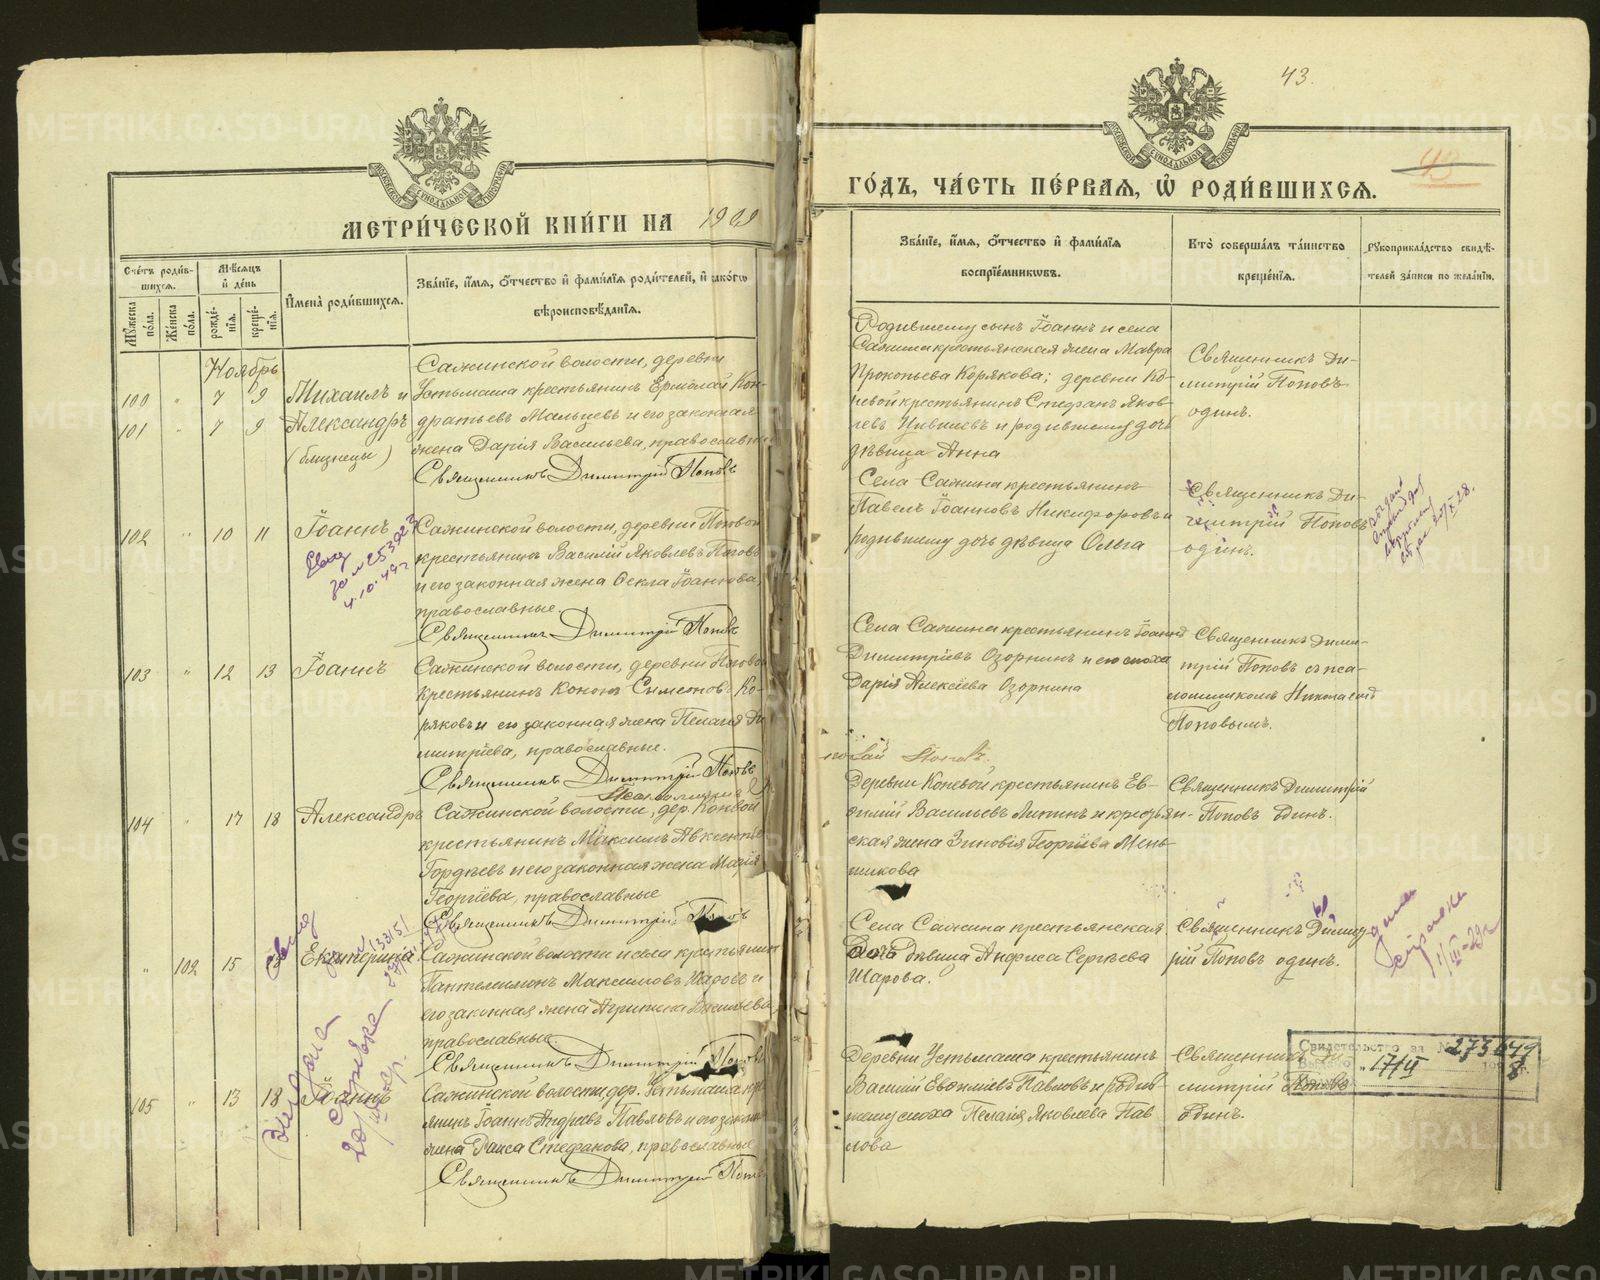 МЕТРИ́ЧЕСКОЙ КНИ́ГИ НА 1909
Сче́тъ роди́в-
шихся.
Мꙋ́жеска по́ла.
Же́нска по́ла.
Мѣ́сяцъ
и҆ де́нь
рожде́-
нїѧ.
креще́-
нїѧ.
И҆мена̀ роди́вшихсѧ.
Зва́нїе, и҆́мѧ, ѻ҆́тчество и҆ фами́лїѧ роди́телей, и҆ како́гѡ
вѣроисповѣ́данїѧ.
Ноябрь
100 " 7 9 Михаилъ и
101 " 7 9 Александръ
(близнецы)
Сажинской волости, деревни
Устьмаша крестьянинъ Ермолай Кон-
дратьевъ Мальцевъ и его законная
жена Дарія Васильева, православные
Священникъ Димитрій Поповъ
102 " 10 11 Іоаннъ
Сажинской волости, деревни Поповой
крестьянинъ Василій Яковлевъ Поповъ
и его законная жена Ѳекла Іоаннова,
православные.
Священникъ Димитрій Поповъ
4.10.49 г
103 " 12 13 Іоаннъ
Сажинской волости, деревни Поповой
крестьянинъ Кононъ Симеоновъ Ко-
ряковъ и его законная жена Пелагія Ди-
митріева, православные.
Священникъ Димитрій Поповъ
104 " 17 18 Александръ
Сажинской волости, дер. Коневой
крестьянинъ Максимъ Авксентьевъ
Гордѣевъ и его законная жена Марія
Георгіева, православные
Священникъ Димитрій Поповъ
" 102 15 Екатерина
Сажинской волости и села крестьянинъ
Пантелеимонъ Максимовъ Шаровъ и
его законная жена Агрипина Васильева,
православные.
Священникъ Димитрій Поповъ
105 " 13 18 Іоаннъ
Сажинской волости, дер. Устьмаша кре-
янинъ Іоаннъ Андреевъ Павловъ и его законная
жена Раиса Стефанова, православные
Священникъ Димитрій Поповъ
Выдана
справка
43.
43
ГО́ДЪ, ЧА́СТЬ ПЕ́РВАЯ, Ѡ҆ РОДИ́ВШИХСѦ.
Зва́нїе, и҆́мѧ, ѻ҆́тчество и҆ фами́лїѧ
воспрїе́мникѡвъ.
Кто̀ соверша́лъ та́инство
креще́нїѧ.
Рꙋкоприкла́дство свидѣ́-
телей за́писи по жела́нїю.
Родившему сынъ Іоаннъ и села
Сажина крестьянская жена Мавра
Прокопьева Корякова; деревни Ко-
невой крестьянинъ Стефанъ Яков-
левъ и родившему дочь
дѣвица Анна
Священникъ Ди-
митрій Поповъ
одинъ.
Села Сажина крестьянинъ
Павелъ Іоанновъ Никифоровъ и
родившему дочь дѣвица Ольга
Священникъ Ди-
митрій Поповъ
одинъ.
Села Сажина крестьянинъ Іоаннъ
Димитріевъ Озорнинъ и его сноха
Дарія Алексіева Озорнина
Священникъ Дими-
трій Поповъ съ пса-
ломщикомъ Николаемъ
Поповымъ.
Поповъ.
Деревни Коневой крестьянинъ Ев-
ѳимій Васильевъ Литинъ и крестьян-
ская жена Зиновія Георгіева Мень-
шикова
Священникъ Димитрій
Поповъ одинъ.
Села Сажина крестьянская
дочь дѣвица Анфиса Сергѣева
Шарова.
Священникъ Димит-
рій Поповъ одинъ.
дана
справка
Деревни Устьмаша крестьянинъ
Василій Евѳиміевъ Павловъ и родив-
шему сноха Пелагія Яковлева Пав
лова
Священникъ Ди-
митрій Поповъ
одинъ.
Свидетельство за № 273649
"17/II
METRIKI.GASO-URAL.RU